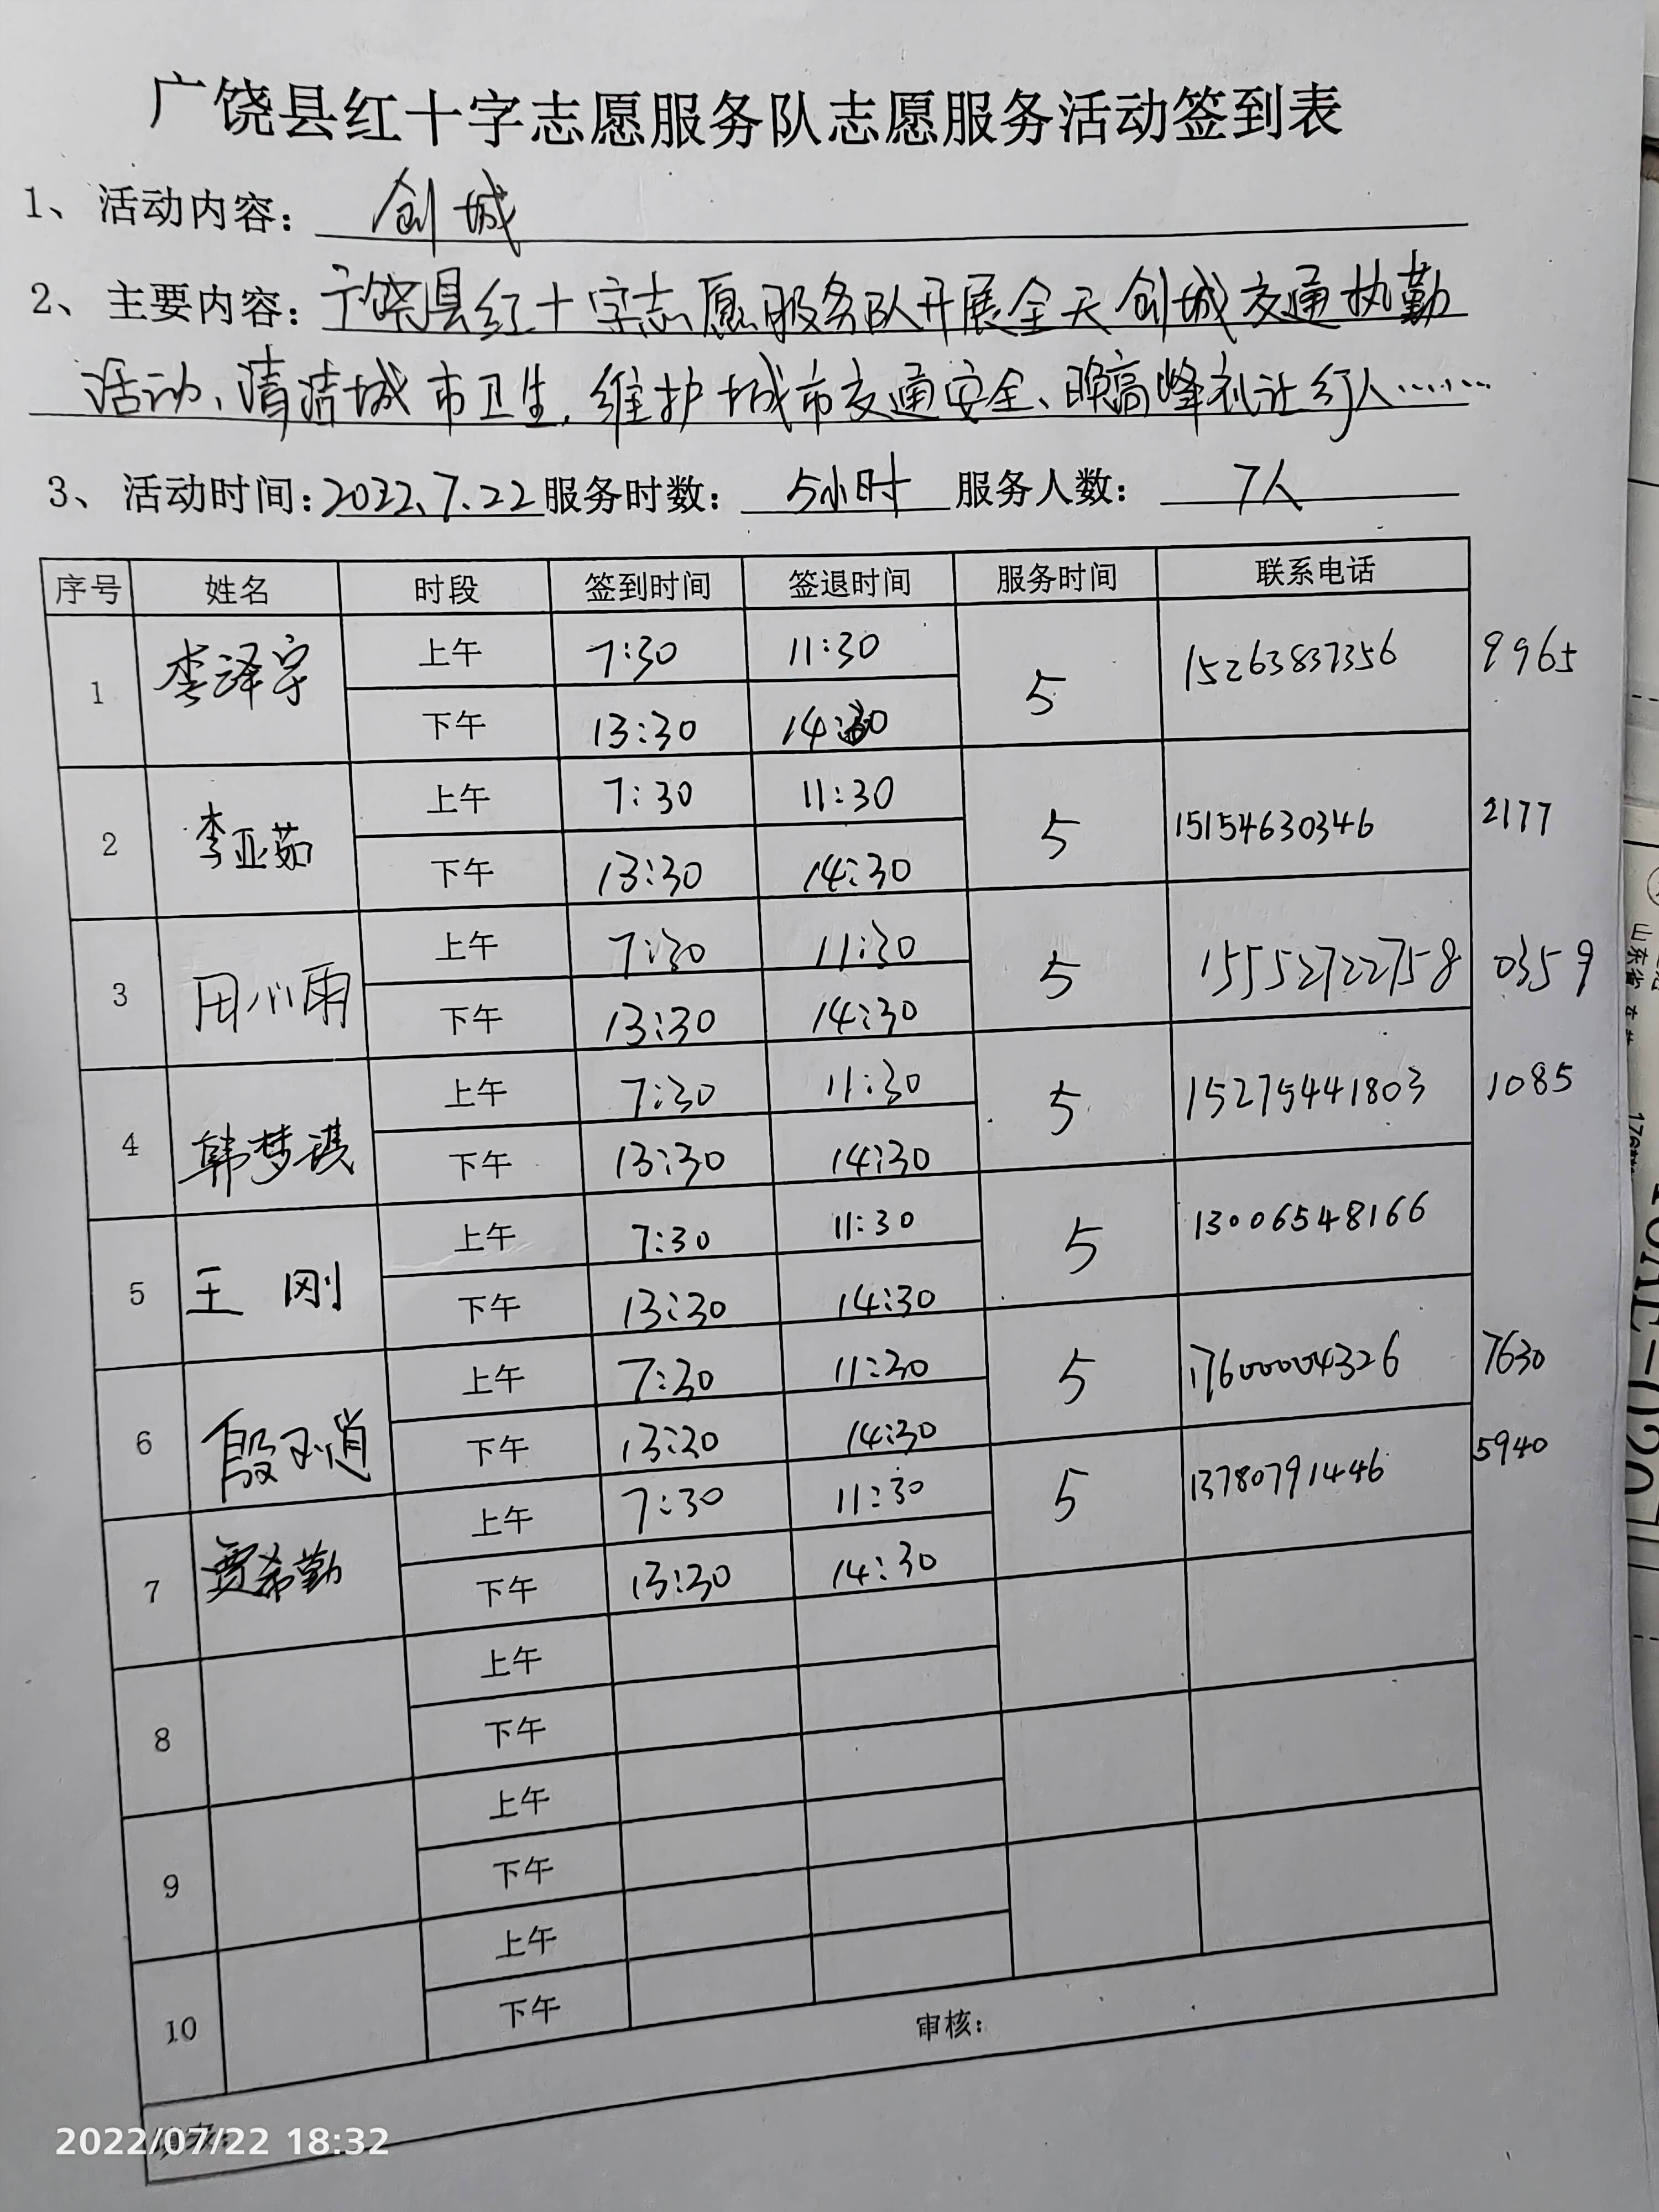 广饶县红十字志愿服务队志愿服务活动签到表
1、活动内容：创城
2、主要内容：广饶县红十字志愿服务队开展全天创城交通执勤
活动、清洁城市卫生，维护城市交通安全、晚高峰礼让行人……
3、活动时间：2022.7.22 服务时数：5小时 服务人数：7人
序号 姓名 时段 签到时间 签退时间 服务时间 联系电话
1 李泽宇 上午 7:30 11:30 5 15263837356 9965
下午 13:30 14:30
2 李亚茹 上午 7:30 11:30 5 15154630346 2177
下午 13:30 14:30
3 田心雨 上午 7:30 11:30 5 15552722758 0359
下午 13:30 14:30
4 韩梦琪 上午 7:30 11:30 5 15275441803 1085
下午 13:30 14:30
5 王刚 上午 7:30 11:30 5 13006548166
下午 13:30 14:30
6 殷 上午 7:30 11:30 5 17600004326 7630
下午 13:30 14:30
7 贾希勤 上午 7:30 11:30 5 13780791446 5940
下午 13:30 14:30
8 上午
下午
9 上午
下午
10 上午
下午
审核：
2022/07/22 18:32
山东省